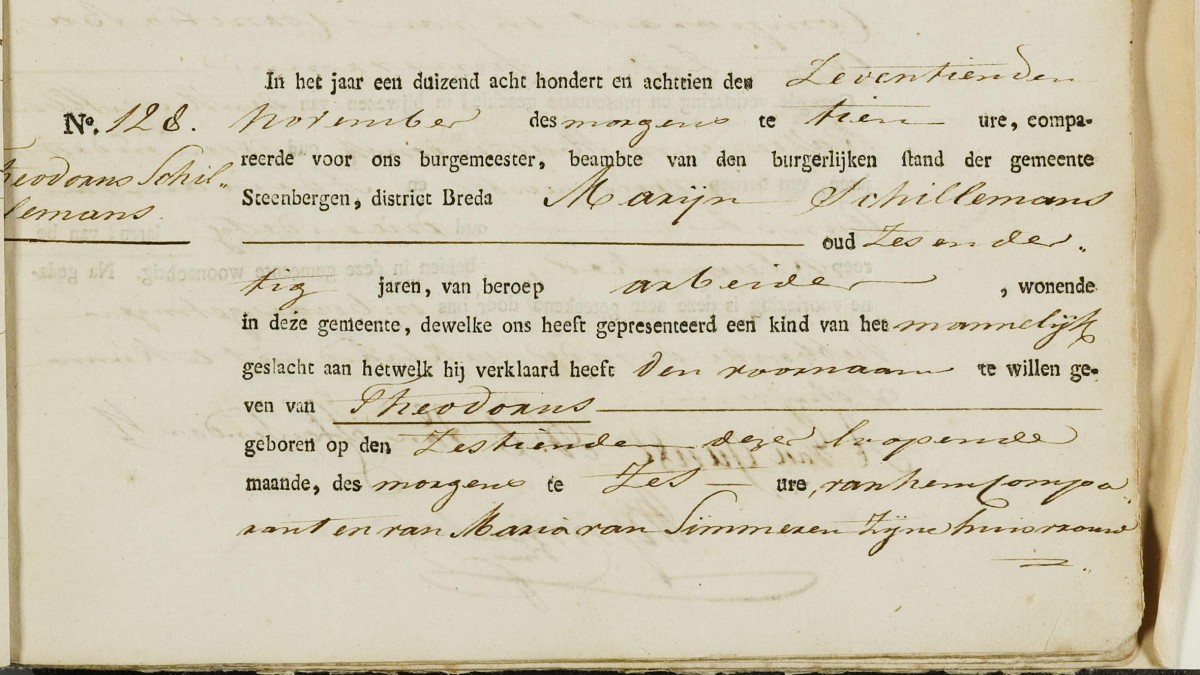 In het jaar een duizend acht hondert en achttien den Zeventienden
No. 128. November des morgens te tien ure, compa-
reerde voor ons burgemeester, beambte van den burgerlijken stand der gemeente
Theodorus Schil„
lemans.
Steenbergen, district Breda Marijn Schillemans
oud Zes en der„
tig jaren, van beroep arbeider, wonende
in deze gemeente, dewelke ons heeft gepresenteerd een kind van het mannelijk
geslacht aan hetwelk hij verklaard heeft den voornaam te willen ge-
ven van Theodorus
geboren op den Zestiende dezer loopende
maande, des morgens te Zes ure, van hem Compa
rant en van Maria van Simmeren Zijne huisvrouw